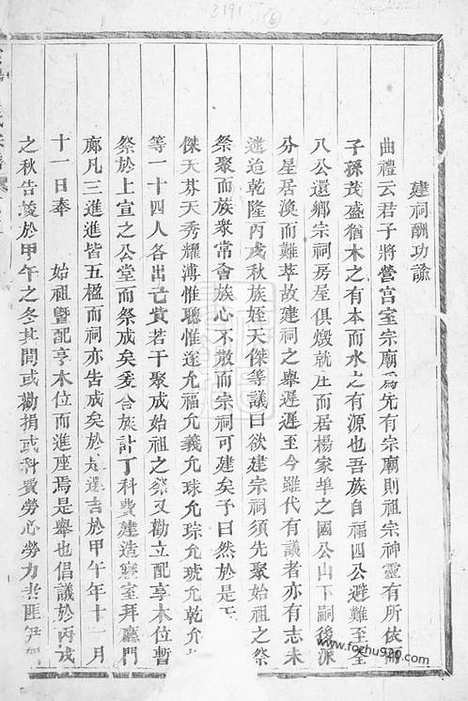 建祠酬功議
曲禮云君子將營宫室宗廟爲先有宗廟則祖宗神靈有所依而
子孫茂盛猶木之有本而水之有源也吾族自福四公避難至全
八公還鄉宗祠房屋俱燬就庄而居楊家埠之國公山下嗣後派
分星居渙而難萃故建祠之舉遲遲至今雖代有議者亦有志未
遂迨乾隆丙戌秋族姪天傑等議曰欲建宗祠須先聚始祖之祭
祭聚而族衆常會族心不散而宗祠可建矣予曰然於是
傑天芬天秀耀溥惟聰惟進允福允義允球允琮允琥允乾允
等一十四人各出亡貲若干聚成始祖之祭又勸立配享木位暫
祭於上宣之公堂而祭成矣委合族計丁科費建造寢室拜廳門
廊凡三進進皆五楹而祠亦告成矣於是選吉於甲午年十一月
十一日奉 始祖暨配享木位而進座焉是舉也倡議於丙戌
之秋告竣於甲午之冬其間或勸捐或科費勞心勞力者匪伊
2191
www.fozhu920.com